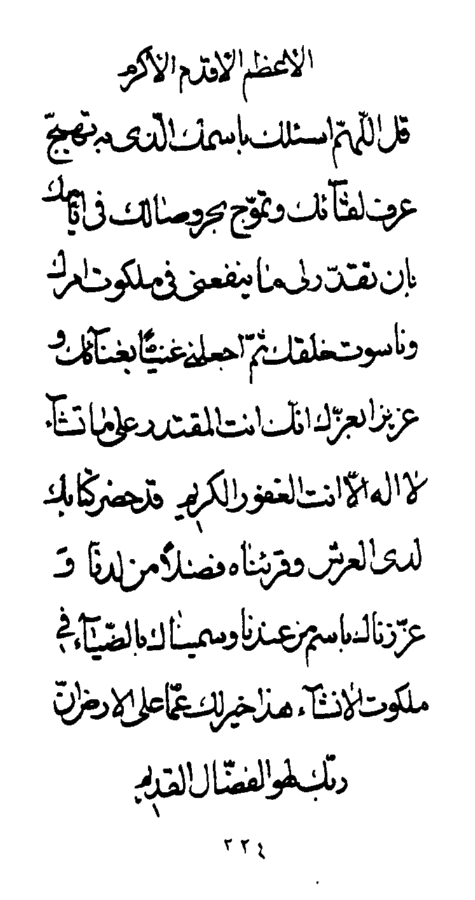 الاعظم الاقدم الاكرم
قل اللّهمّ اسئلك باسمك الّذى به تهيّج
عرف لقآئك و تموّج بحر وصالك فى ايّامك
بان تقدّر لى ما ينفعنى فى ملكوت امرك
و ناسوت خلقك ثمّ اجعلنى غنيّاً بغنآئك و
عزيزا بعزّك انّك انت المقتدر على ما تشآء
لا اله الّا انت الغفور الكريم قد حضر كتابك
لدى العرش و قرئناه فضلاً من لدنّا و
عزّزناك باسم من عندنا و سمّيناك بالضّيآء فى
ملكوت الانشآء هذا خير لك عمّا على الارض انّ
ربّك لهو الفضّال القديم
٢٢٤